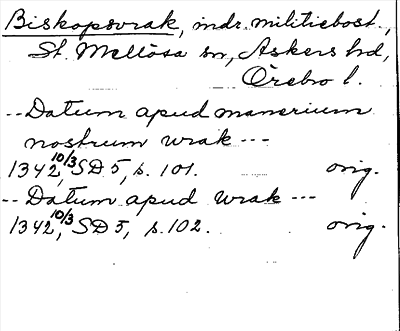 Biskopsvrak, indr. militiebost.,
St. Mellösa sn, Askers hd,
Örebro l.
-- Datum apud manerium
nostrum wrak ---
1342 10/3, SD 5, s. 101. orig.
-- Datum apud wrak ---
1342 10/3, SD 5, s. 102. orig.